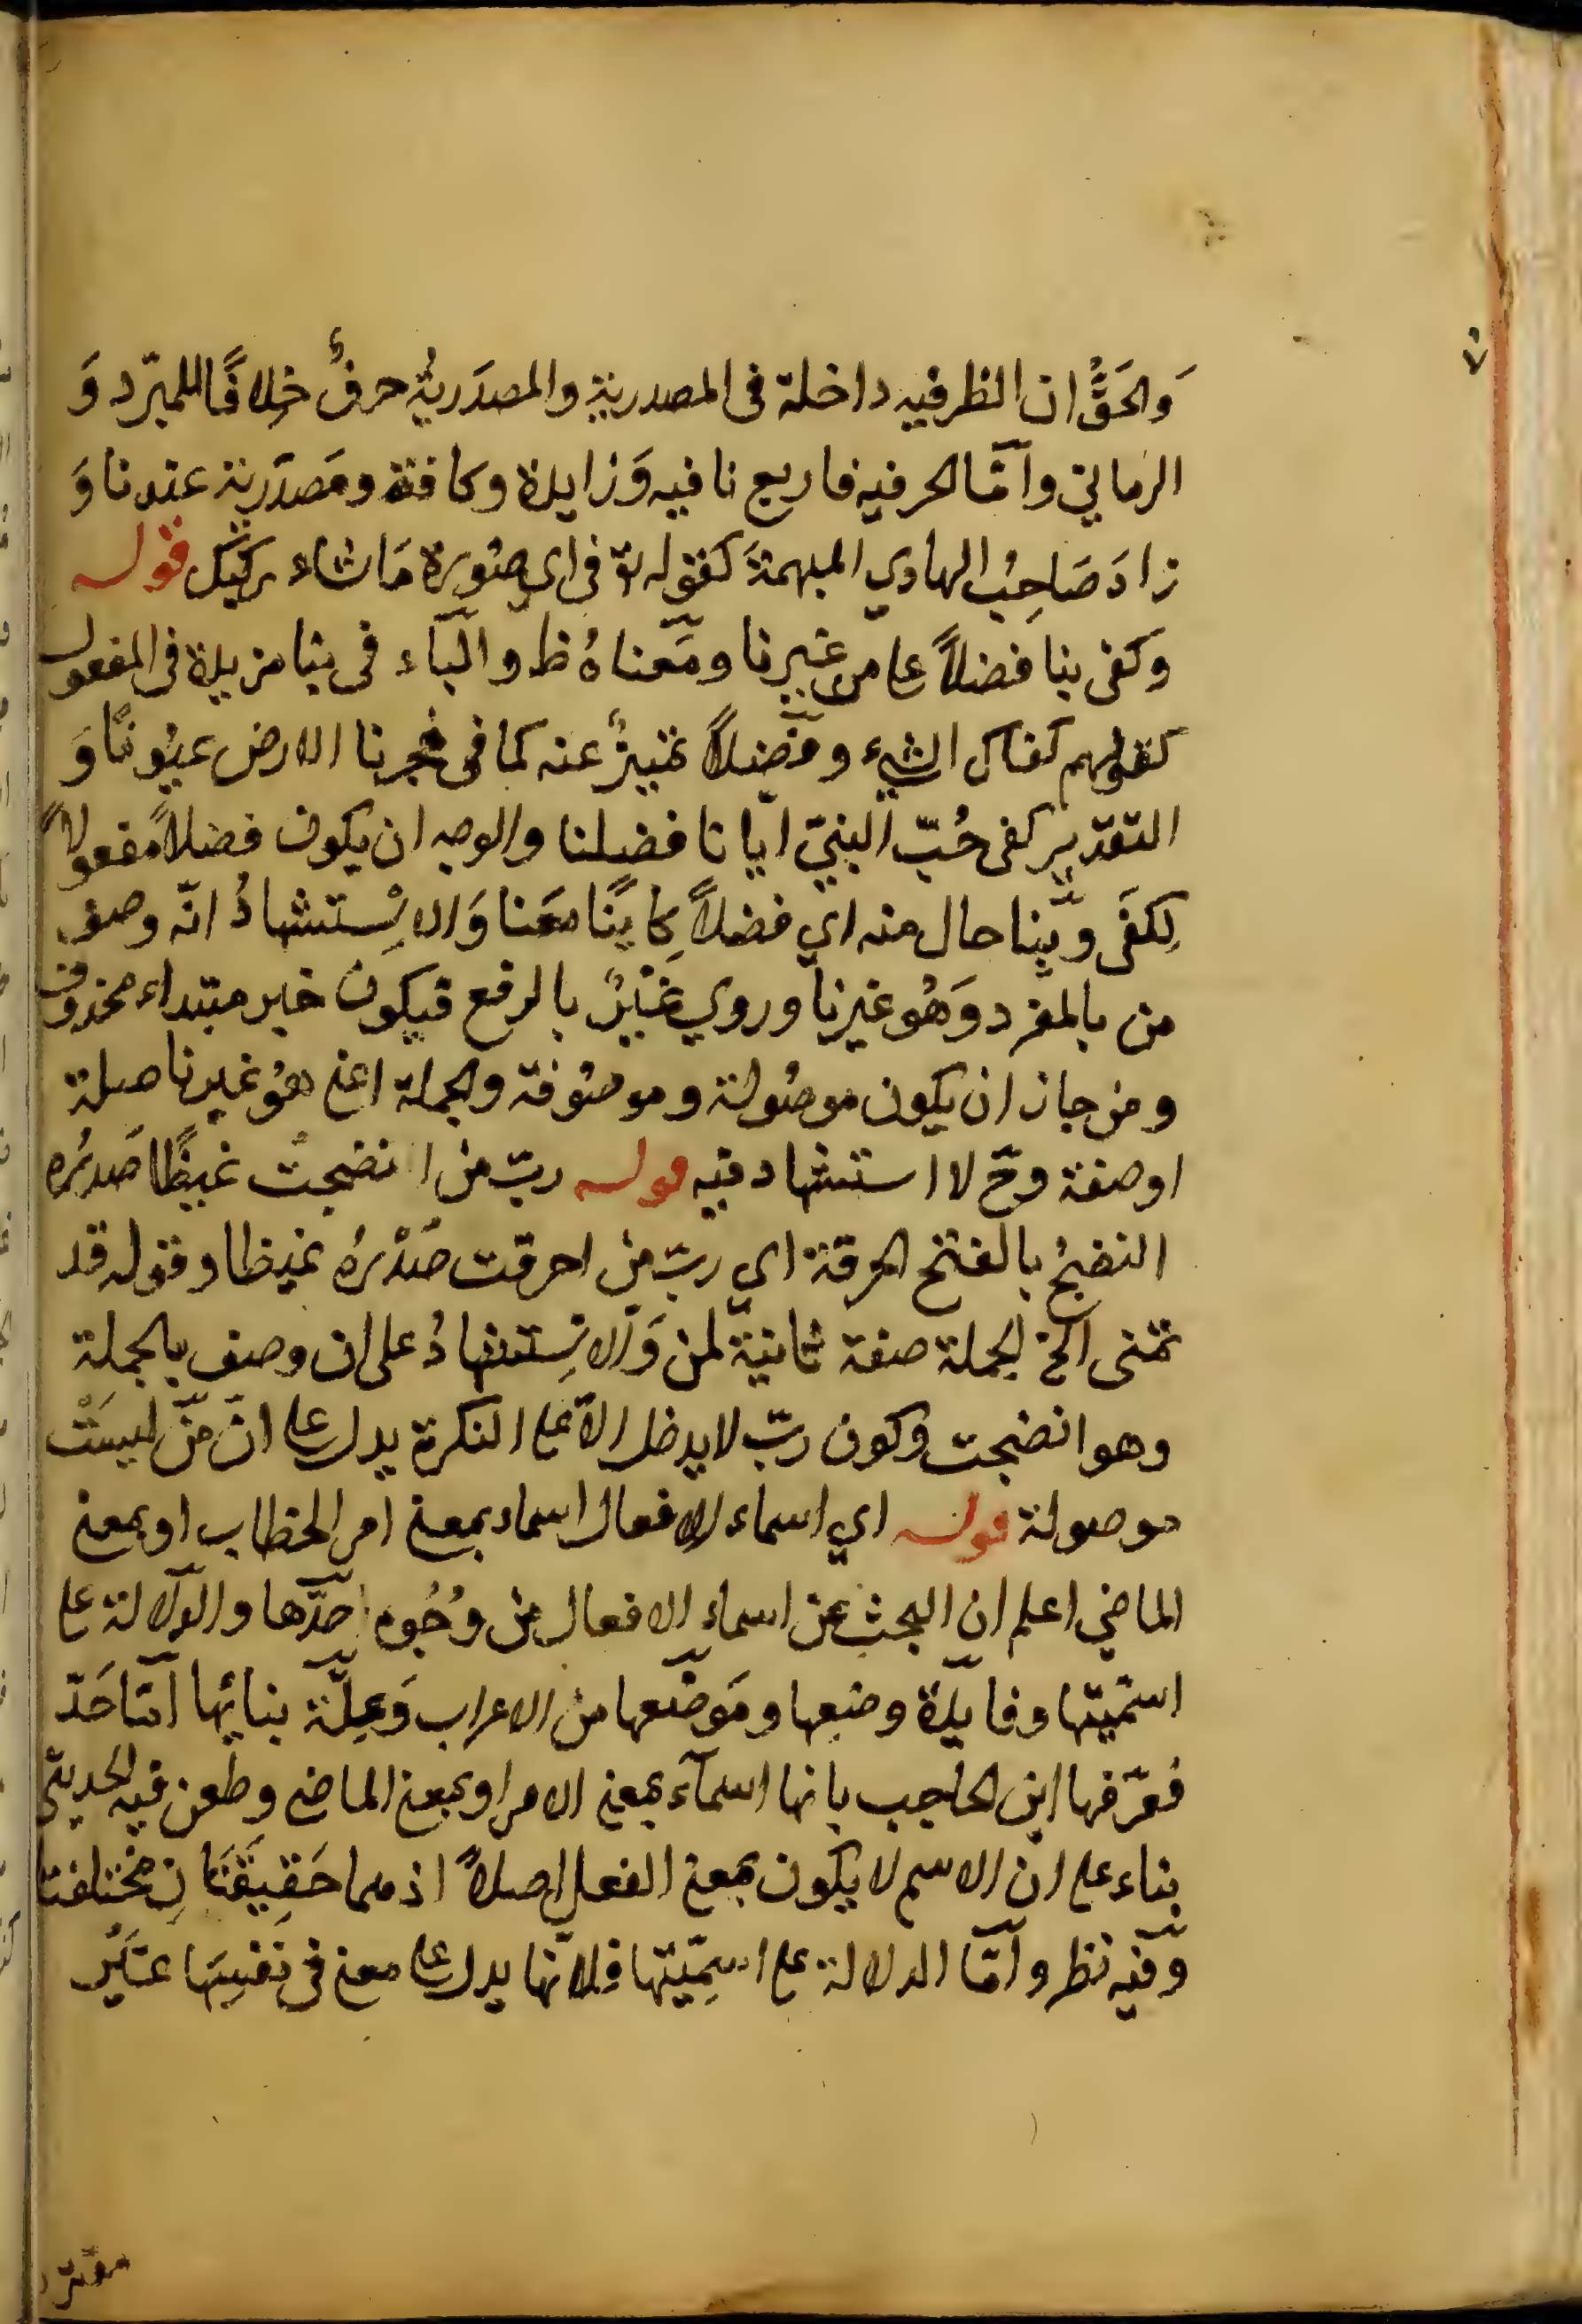 وَالحَقُّ ان الظرفيه داخلة فى المصدرية والمصدَريةُ حرفٌ خِلافًا للمبرّد وَ
الرماني وامّا الحرفيه فاربع نافيه وَزايدة وكافة ومَصدَرية عندنا وَ
زادَ صَاحِبُ الهادي المبهمةَ كقوله تع فى اي صُورة مَا شاء ركبك قوله
وكفى بنا فضلاً على من غيرنا ومَعناهُ ظ والباء فى بنا مزيدة فى المفعول
كقولهم كفاك الشيء وفضلاً تمييزٌ عنه كما فى فجرنا الارض عيُونًا وَ
التقدير كفى حُبّ النبيّ ايانا فضلنا والوجه ان يكون فضلاً مفعولاً
لِكفَى وبِنا حال منه اي فضلاً كاينًا معَنا وَالاِسْتشهادُ انّه وصف
من بالمفرد وَهُو غيرنا وروي غيرُ بالرفع فيكون خبر مبتداء محذوف
ومن جاز ان يكون موصُولة وموصُوفة والجملة اعنى هُو غيرنا صلة
اوصفة وح لا استشهاد فيه قوله ربّ من انضجتُ غيظًا صَدرُه
النضجُ بالفتح الحرقة اي ربّ من احرقت صَدْرهُ غيظا وقوله قد
تمنى الخ الجملة صفة ثانيّة لمن وَالاِستشهادُ على ان وصف بالجملة
وهو انضجت وكون ربّ لا يدخل الاّ على النكرة يدل على انّ مَن ليسَتْ
موصولة قوله اي اسماء الافعال اسماء بمعنى امر المخطاب او بمعنى
الماضي اعلم ان البحث عن اسماء الافعال من وُجُوه احدّها والدّلالة على
اسميّتها وفايدة وضعها ومَوضعها من الاعراب وَعِلّة بنائها امّا حَدّ
فعرّفها ابن الحاجب بانها اسمآء بمعنى الامر او بمعنى الماضى وطعن فيه الحديثى
بناء على ان الاسم لا يكون بمعنى الفعل اصلاً اذ هما حَقِيقَتَانِ مختلفتا
وفيه نظر وامّا الدلالة على اسمِيّتها فلانّها يدل على معنى فى نفسِهَا غَيْر